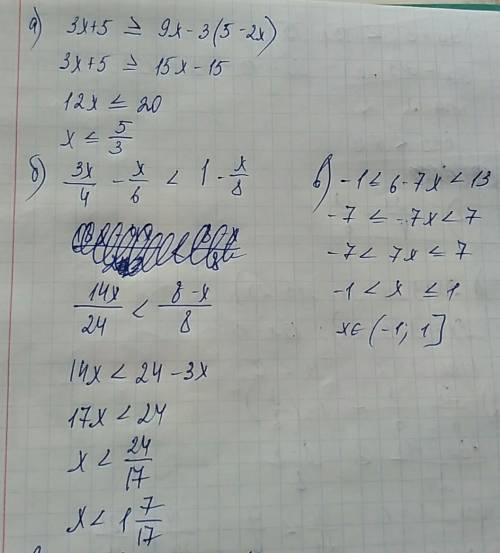 а) 3x+5 ≥ 9x-3(5-2x)
3x+5 ≥ 15x-15
12x ≤ 20
x ≤ 5/3
б) 3x/4 - x/6 < 1 - x/8
14x/24 < 8-x/8
14x < 24-3x
17x < 24
x < 24/17
x < 1 7/17
в) -1 ≤ 6-7x < 13
-7 ≤ -7x < 7
-7 < 7x ≤ 7
-1 < x ≤ 1
x∈(-1; 1]